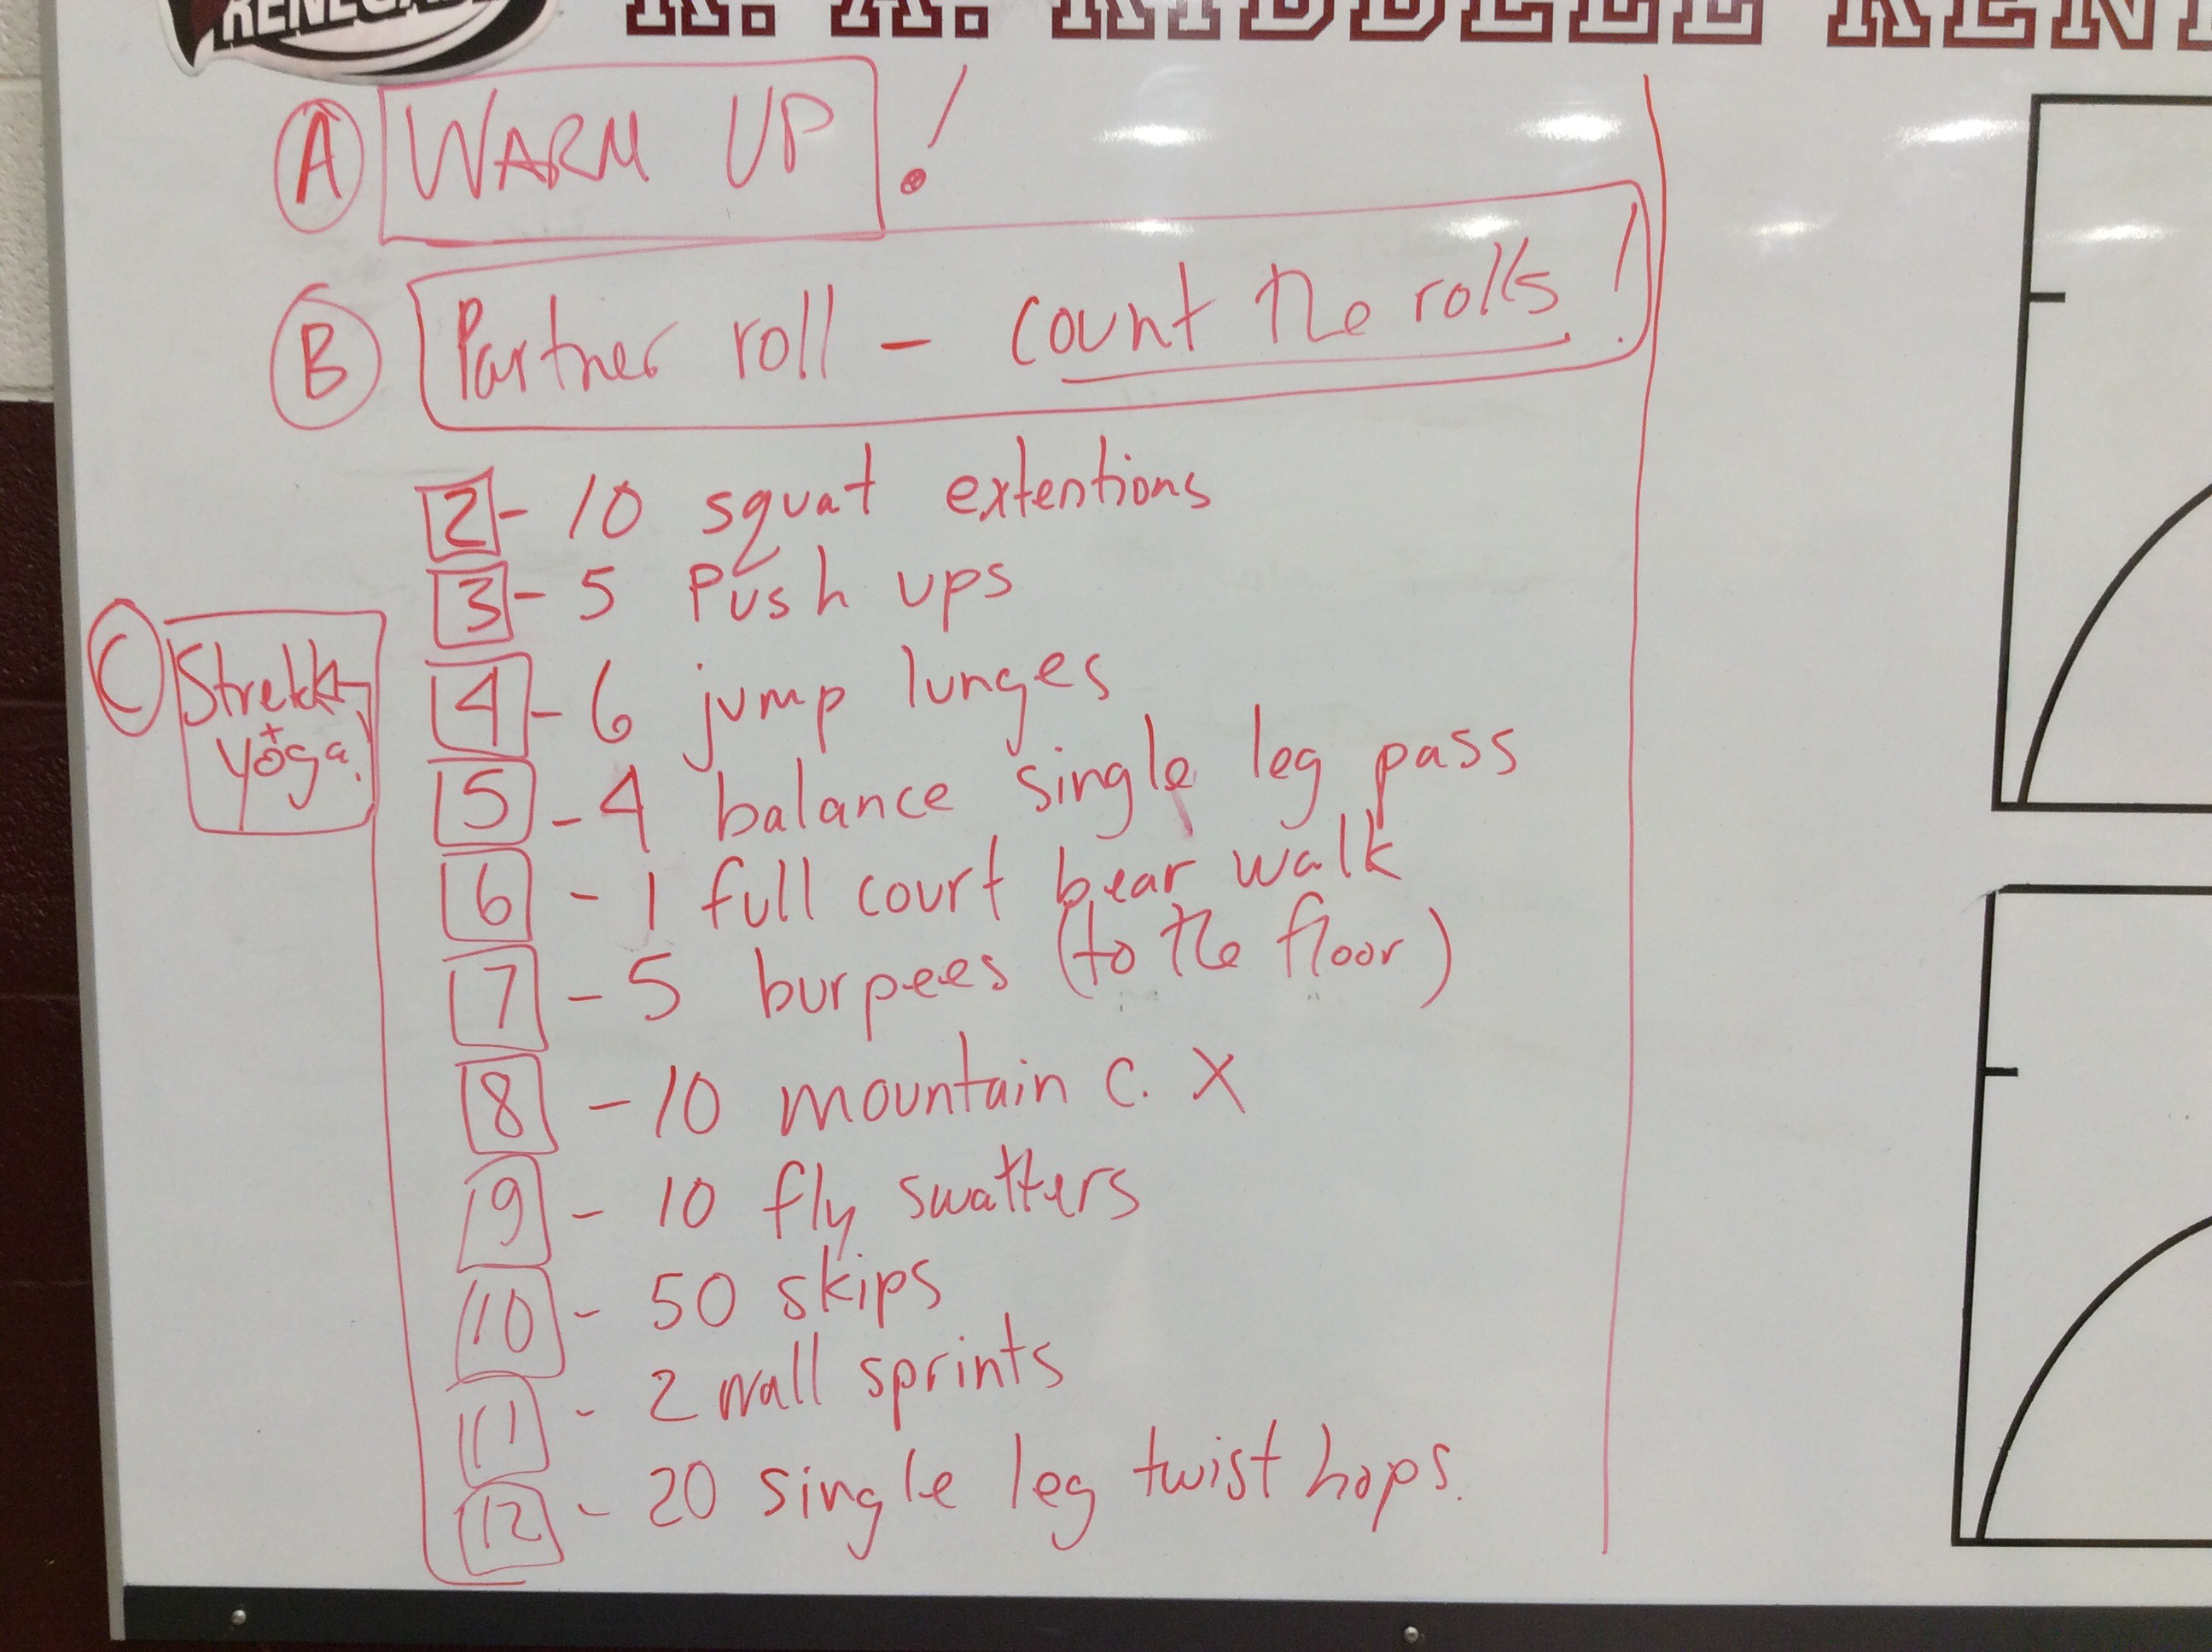 RENEGA
R. A. RIDDELL RENE
A WARM UP!
B Partner roll - count the rolls!
2 - 10 squat extentions
3 - 5 Push ups
4 - 6 jump lunges
5 - 4 balance single leg pass
6 - 1 full court bear walk
7 - 5 burpees (to the floor)
8 - 10 mountain c. X
9 - 10 fly swatters
10 - 50 skips
11 - 2 wall sprints
12 - 20 single leg twist hops.
C
+
yoga.